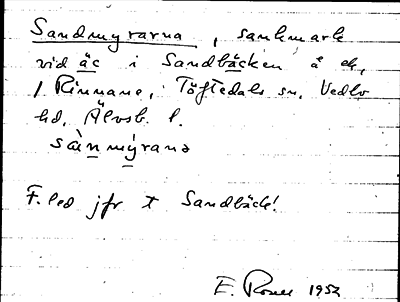 Sandmyrarna, sankmark
vid äc i Sandbäcken å ek,
1 Rinnane, Töftedals sn, Vedbo
hd, Älvsb. l.
sànmýrana
F. led jfr t Sandbäck!
E. 1952